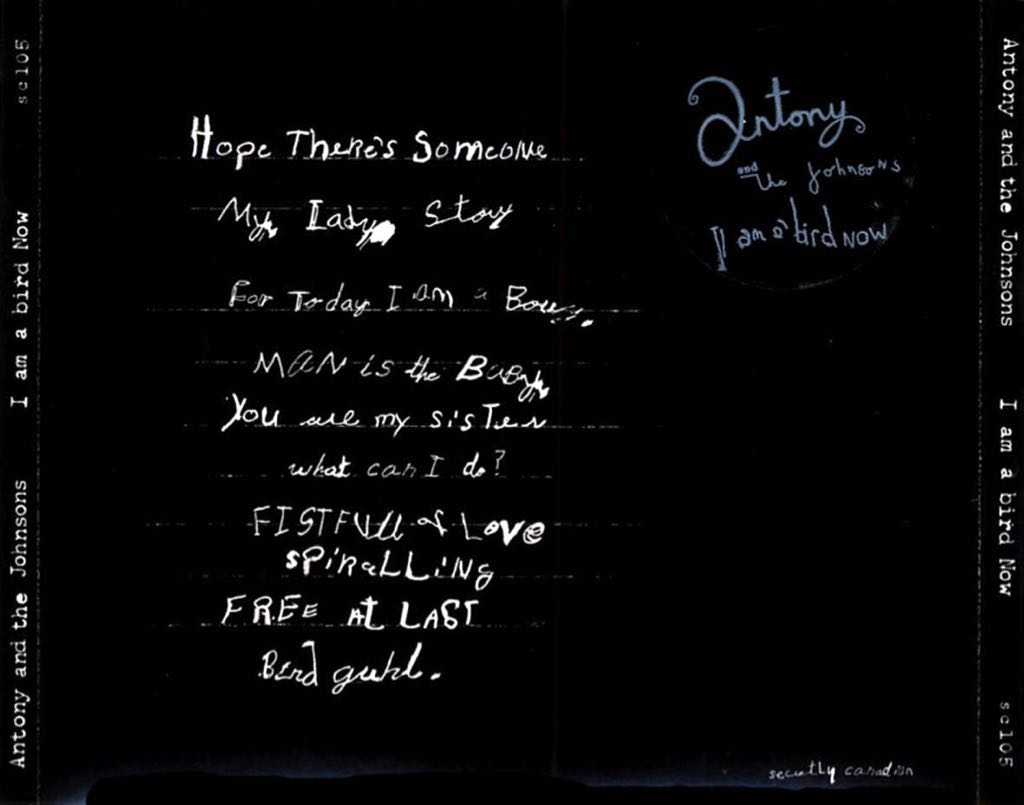 Hope There's Someone
My Lady Story
For Today I am a Boy.
MAN is the Baby
You are my sister
what can I do?
FISTFULL of LOVE
SPiRaLLiNg
FREE AT LAST
Bird guhl.
Antony
and the Johnsons
I am a bird NOW
secretly canadian
Antony and the Johnsons I am a bird Now sc105
Antony and the Johnsons I am a bird Now sc105